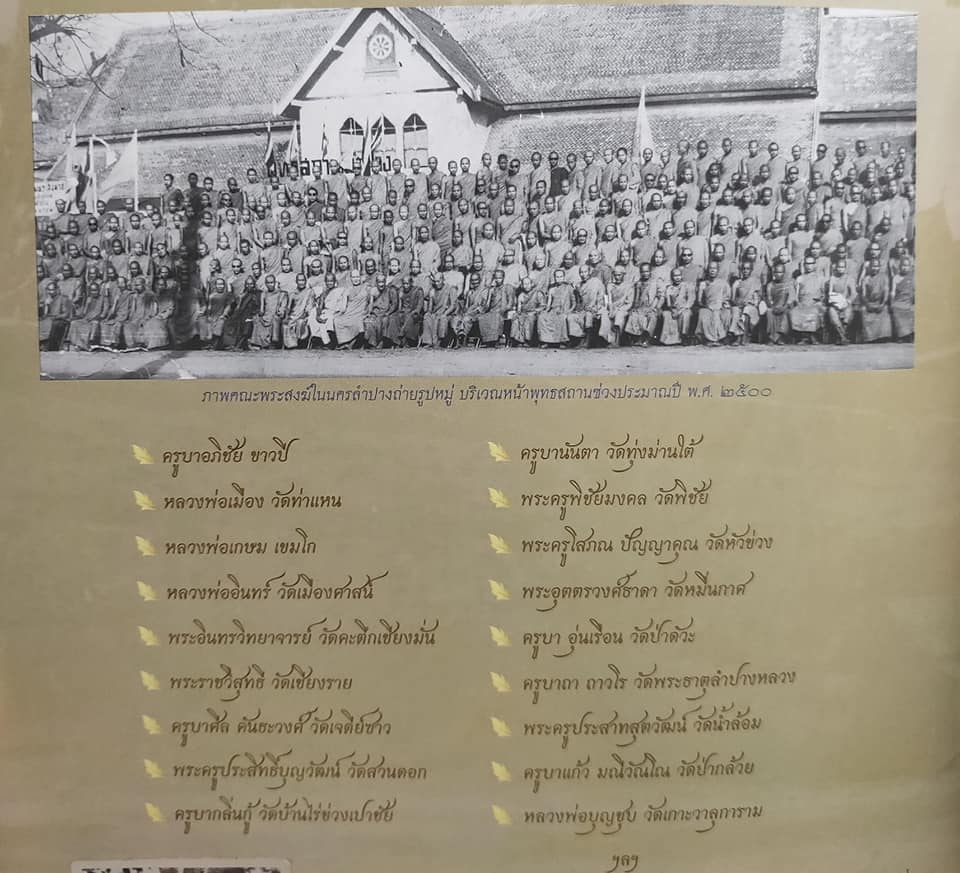 ภาพคณะพระสงฆ์ในนครลำปางถ่ายรูปหมู่ บริเวณหน้าพุทธสถานช่วงประมาณปี พ.ศ. ๒๕๐๐
ครูบาอภิชัย ขาวปี
หลวงพ่อเมือง วัดท่าแหน
หลวงพ่อเกษม เขมโก
หลวงพ่ออินทร์ วัดเมืองศาสน์
พระอินทรวิทยาจารย์ วัดคะตึกเชียงมั่น
พระราชวิสุทธิ วัดเชียงราย
ครูบาศีล คันธะวงศ์ วัดเจดีย์ซาว
พระครูประสิทธิ์บุญวัฒน์ วัดสวนดอก
ครูบากลิ่นกู้ วัดบ้านไร่ข่วงเปาชัย
ครูบานันตา วัดทุ่งม่านใต้
พระครูพิชัยมงคล วัดพิชัย
พระครูโสภณ ปัญญาคุณ วัดหัวข่วง
พระอุตตรวงศ์ธาดา วัดหมื่นกาศ
ครูบา อุ่นเรือน วัดป่าตัวะ
ครูบาถา ถาวโร วัดพระธาตุลำปางหลวง
พระครูประสาทสุตวัฒน์ วัดน้ำล้อม
ครูบาแก้ว มณีวัณโณ วัดป่ากล้วย
หลวงพ่อบุญชุบ วัดเกาะวาลุการาม
ฯลฯ